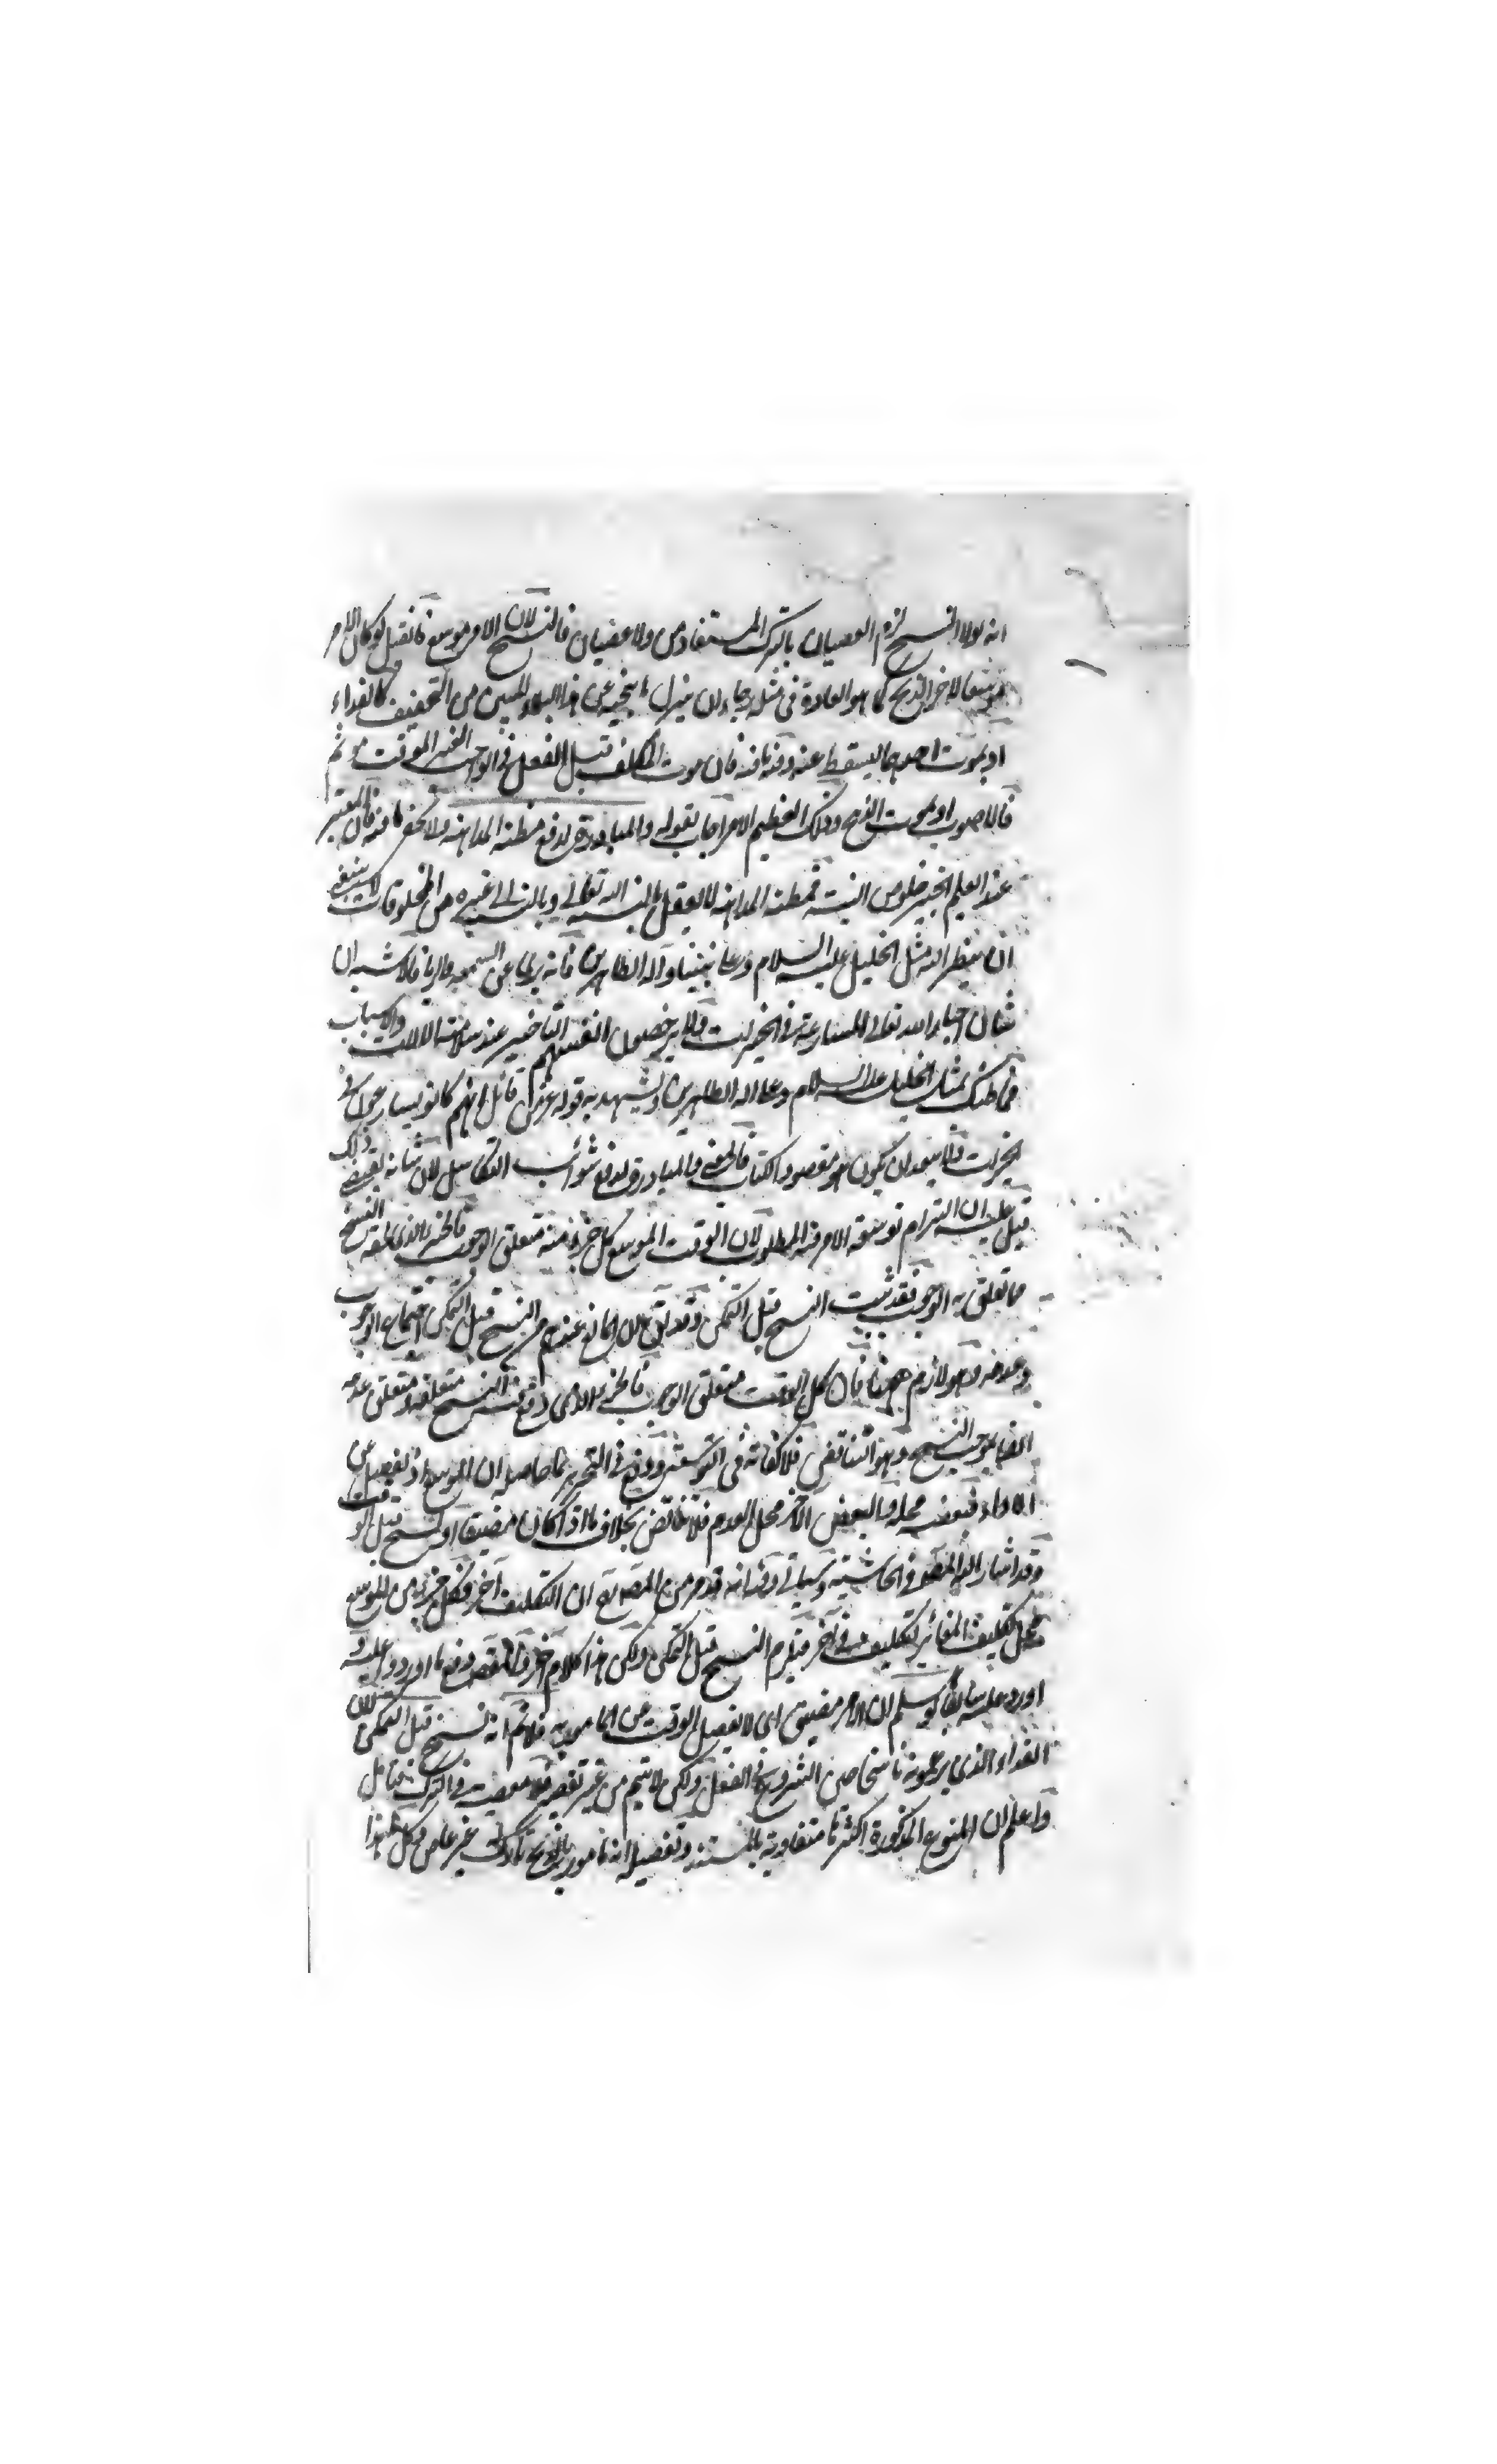 انه لولا النسخ لزم العصيان بالترك المستفاد من ولا عصيان فالنسخ لان الامر موسع فانقيل لو كان الامر
موسعا لاخر الذبح كما هو العادة في مثله رجاء ان ينزل ما ينجيه عن هذا البلاء المبين من التخفيف كالفداء
او يموت احدهما ليسقط عنه وفيه مافيه فان موت المكلف قبل الفعل في الواجب الغير الموقت موثم
فالاصوب او يموت الذبيح وذلك لعظيم الامر اجاب بقوله والمبادرة لدفع مظنة المداهنة ولا يخفى مافيه فان المعتبر
عند العليم الخبير خلوص النية فمظنة المداهنة لا يعقل بالنسبة الى الله تعالى وبالنسبة الى غيره من المخلوقات لا ينبغي
ان ينظر اليه مثل الخليل عليه السلام وعلى نبينا وآله الطاهرين فانه برئ عن السمعة والرياء فالاشبه ان
شان احباء الله تعالى المسارعة في الخيرات ولا يرخصون انفسهم التأخير عند سلامة الالات والاسباب
فما ظنك بمثل الخليل عليه السلام وعلى اله الطاهرين ويشهد به قوله عز من قائل انهم كانوا يسارعون في
الخيرات ولا يبعد ان يكون هو مقصود الكتاب فالمعنى والمبادرة لدفع شوائب التكاسل لان شانه يقتضي ذلك
قيل عليه ان التزام توسعة الامر فيه المطلوب لان الوقت الموسع كل جزء منه متعلق الوجوب فالجزء الذي لحقه النسخ
ما تعلق به الوجوب فقد ثبت النسخ قبل التمكن وقد يق ان المانع عندهم من النسخ قبل التمكن اجتماع الوجوب
وعدمه وهو لازم ههنا فان كل الوقت متعلق الوجوب فالجزء الذي وقع فيه النسخ متعلقه ومتعلق عدمه
ايضا بموجب النسخ وهو التناقض فلا كفاية في التوسعة ودفع في التحرير بما حاصله ان الموسع اذ يفصل عن
الاداء فبعضه محله والبعض الاخر محل العدم فلا تناقض بخلاف ما اذا كان مضيقا او نسخ قبل الوقت
وقد اشار اليه المص في الحاشية وسياتي وفيه انه قد مر من المص ان التكليف آخر فكل جزء من الموسع
محل لتكليف المغائر لتكليف في آخر فيلزم النسخ قبل التمكن ولكن هذا كلام آخر والمقص دفع ما اورد عليه وقد
اورد عليه سابقا لو سلم ان الامر مضيق اي لا يفصل الوقت عن المامور به فلانم انه نسخ قبل التمكن لان
الفداء الذي يزعمونه ناسخا حين الشروع في الفعل ولكن لا يتم من غير تقصير فلا معصية في الترك فتامل
واعلم ان المنوع المذكورة اكثرها متقاربة بالمستند وتفصيله انه مامور بالذبح تارك غير عاص وكل هذا